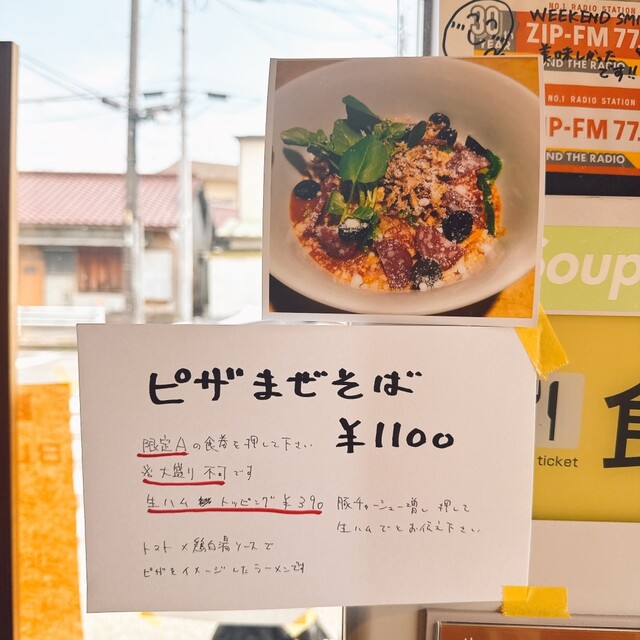 30
YEAR
WEEKEND SM
美味しかった
です!!
NO.1 RADIO STATION
ZIP-FM 77.
AND THE RADIO
NO.1 RADIO STATION
IP-FM 77.
AND THE RADIO
Soup
ピザまぜそば
¥1100
限定Aの食券を押して下さい
※大盛り不可です
生ハム トッピング ¥390
豚チャーシュー増し 押して
生ハムでとお伝え下さい
トマト×鶏白湯ソースで
ピザをイメージしたラーメンです
食
ticket